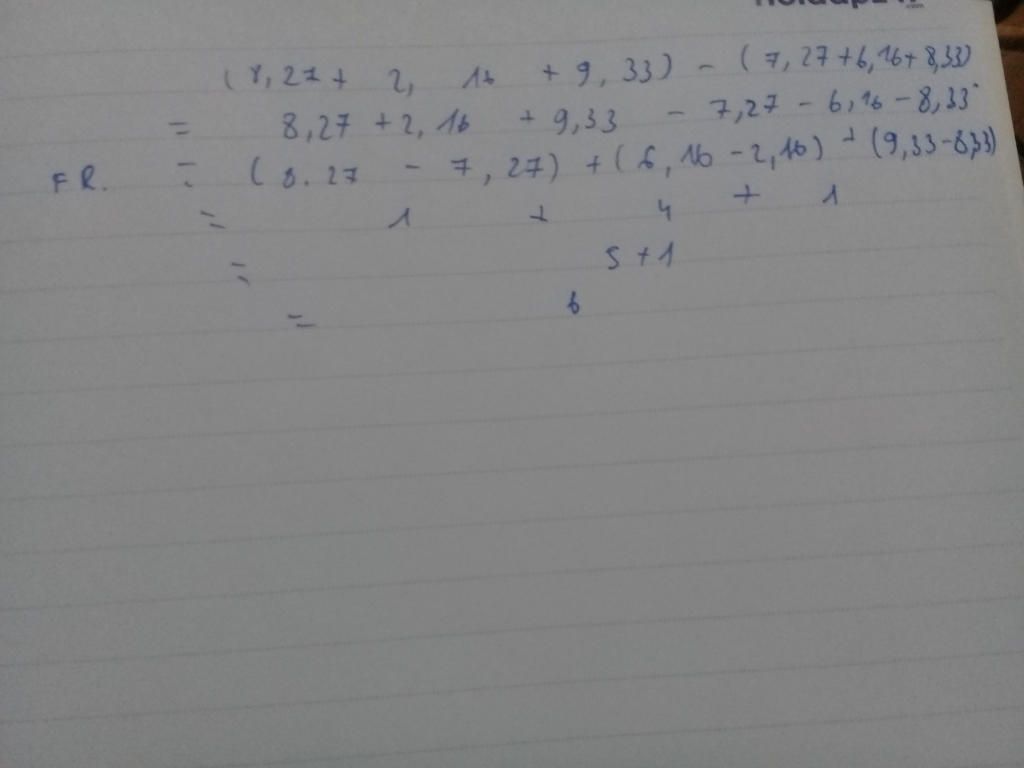 (8,27+ 2, 16 + 9, 33) - (7,27+6,16+8,33)
= 8,27 +2,16 + 9,33 - 7,27 - 6,16 - 8,33
FR. = (8.27 - 7,27) + (6,16 - 2,16) + (9,33-8,33)
= 1 + 4 + 1
= 5 + 1
= 6